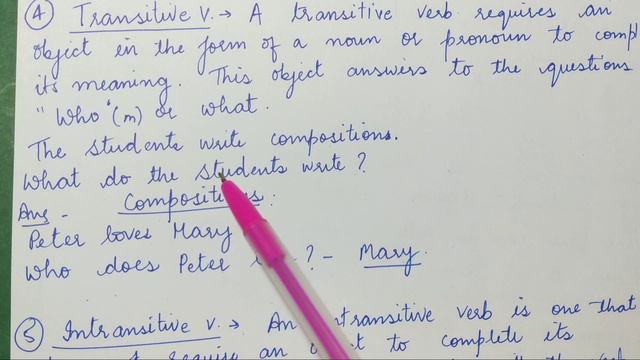 ④ Transitive v. → A transitive verb requires an
object in the form of a noun or pronoun to comp
its meaning. This object answers to the questions
"Who"(m) or what.
The students write compositions.
What do the students write?
Ans - Compositions:
Peter loves Mary
Who does Peter ? - Mary.
⑤ Intransitive v. → An intransitive verb is one that
require an to complete its